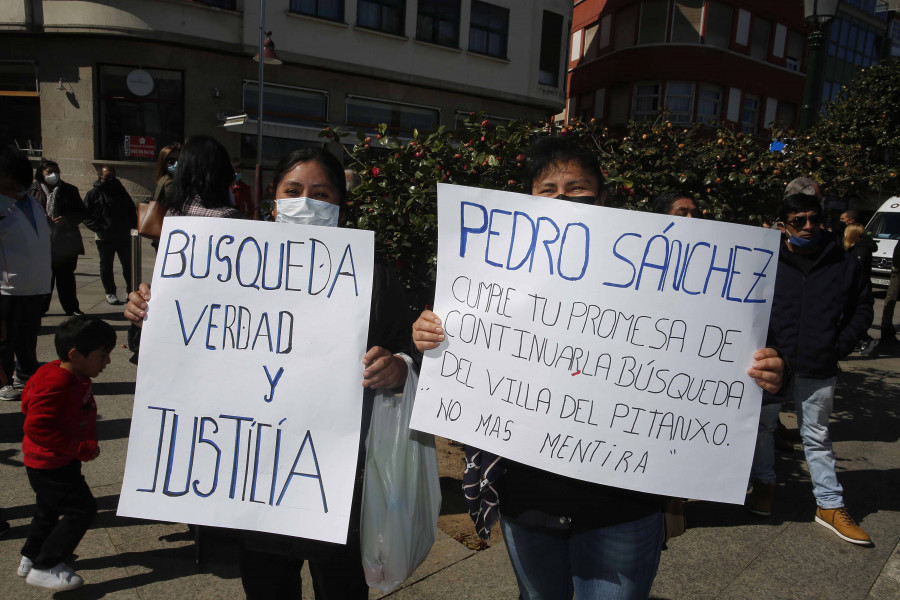 BUSQUEDA
VERDAD
Y
JUSTICIA
PEDRO SÁNCHEZ
CUMPLE TU PROMESA DE
CONTINUAR LA BÚSQUEDA
DEL VILLA DEL PITANXO.
"NO MAS MENTIRA"